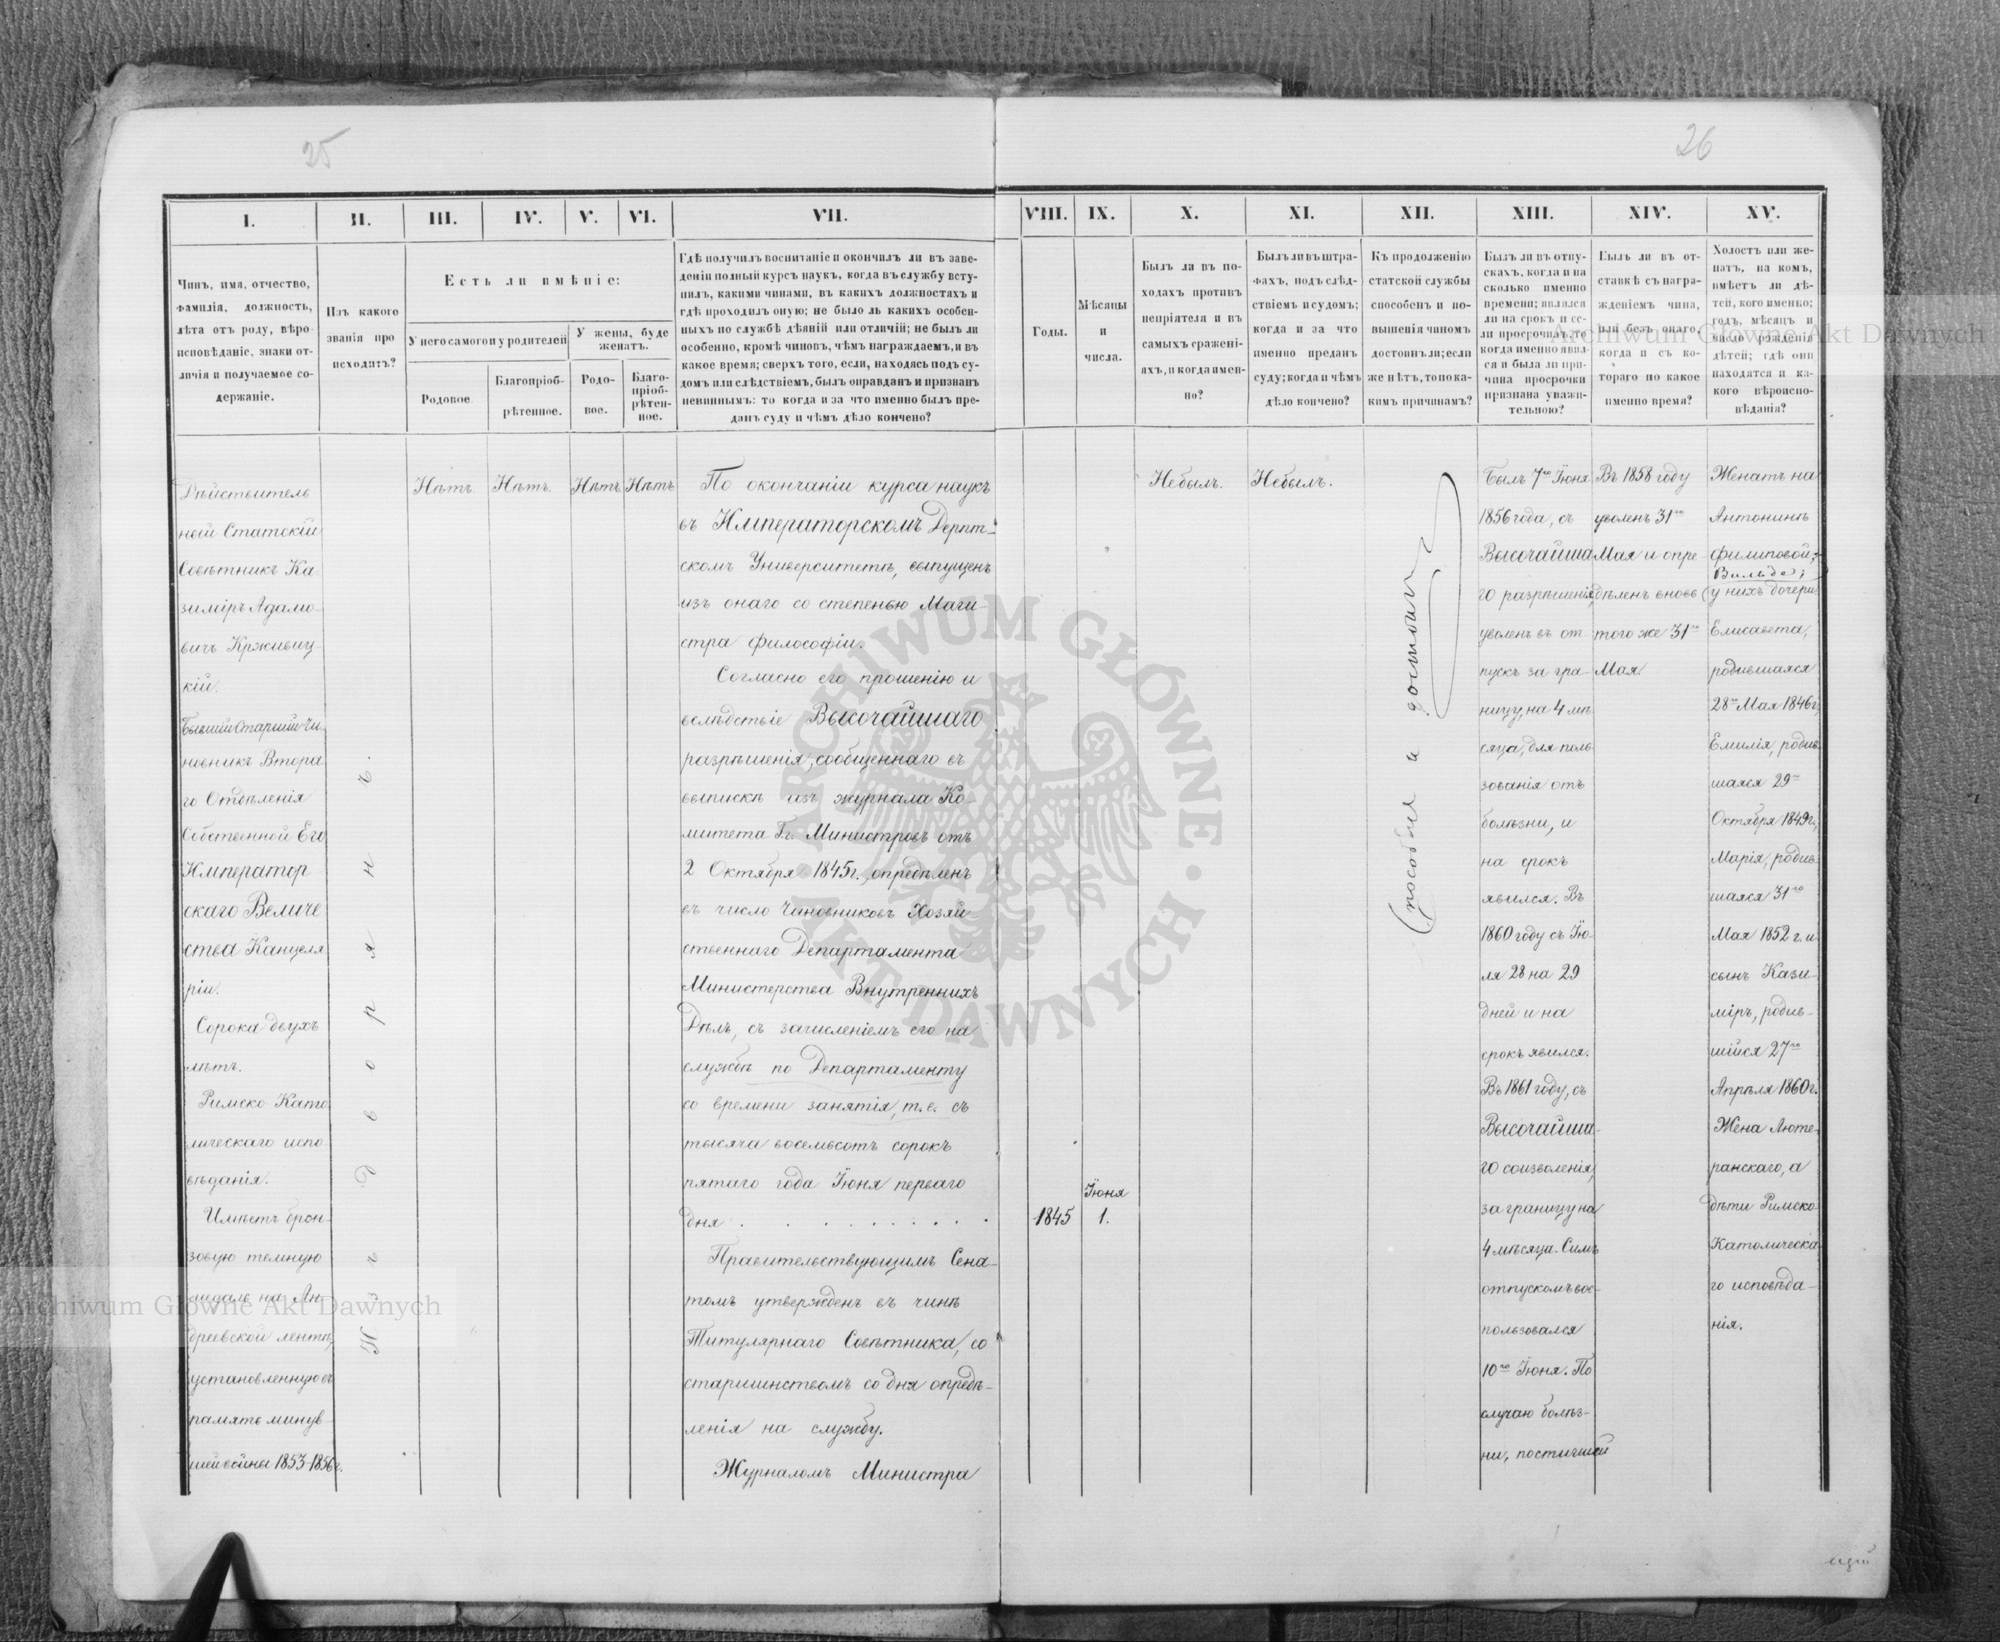 25
26
I.
II.
III.
IV.
V.
VI.
VII.
VIII.
IX.
X.
XI.
XII.
XIII.
XIV.
XV.
Чинъ, имя, отчество,
фамилія, должность,
лѣта отъ роду, вѣро-
исповѣданіе, знаки от-
личія и получаемое со-
держаніе.
Изъ какого
званія про
исходитъ?
Есть ли имѣніе:
У него самого и у родителей
У жены, буде
женатъ.
Родовое.
Благопріоб-
рѣтенное.
Родо-
вое.
Благо-
пріоб-
рѣтен-
ное.
Гдѣ получилъ воспитаніе и окончилъ ли въ заве-
деніи полный курсъ наукъ, когда въ службу всту-
пилъ, какими чинами, въ какихъ должностяхъ и
гдѣ проходилъ оную; не было ль какихъ особен-
ныхъ по службѣ дѣяній или отличій; не былъ ли
особенно, кромѣ чиновъ, чѣмъ награждаемъ, и въ
какое время; сверхъ того, если, находясь подъ су-
домъ или слѣдствіемъ, былъ оправданъ и признанъ
невиннымъ: то когда и за что именно былъ пре-
данъ суду и чѣмъ дѣло кончено?
Годы.
Мѣсяцы
и
числа.
Былъ ли въ по-
ходахъ противъ
непріятеля и въ
самыхъ сражені-
яхъ, и когда имен-
но?
Былъ ли въ штра-
фахъ, подъ слѣд-
ствіемъ и судомъ;
когда и за что
именно преданъ
суду; когда и чѣмъ
дѣло кончено?
Къ продолженію
статской службы
способенъ и по-
вышенія чиномъ
достоинъ ли; если
же нѣтъ, то по ка-
кимъ причинамъ?
Былъ ли въ отпу-
скахъ, когда и на
сколько именно
времени; являлся
ли на срокъ и ес-
ли просрочилъ, то
когда именно явил-
ся и была ли при-
чина просрочки
признана уважи-
тельною?
Былъ ли въ от-
ставкѣ съ награ-
жденіемъ чина,
или безъ онаго,
когда и съ ко-
тораго по какое
именно время?
Холостъ или же-
натъ, на комъ,
имѣетъ ли дѣ-
тей, кого именно;
годъ, мѣсяцъ и
число рожденія
дѣтей; гдѣ они
находятся и ка-
кого вѣроиспо-
вѣданія?
Дѣйствитель
ный Статскій
Совѣтникъ Ка
зиміръ Адамо-
вичъ Крживиц-
кій.
Бывшій Старшій Чи-
новникъ Втора
го Отдѣленія
Собственной Его
Император
скаго Величе
ства Канцеля
ріи.
Сорока двухъ
лѣтъ.
Римско Като
лическаго испо
вѣданія.
Имѣетъ брон-
зовую темную
медаль на Ан-
дреевской лентѣ,
установленную въ
память минув-
шей войны 1853-1856 г.
Изъ Дворянъ.
Нѣтъ.
Нѣтъ.
Нѣтъ
Нѣтъ
По окончаніи курса наукъ
въ Императорскомъ Дерпт-
скомъ Университетѣ, выпущенъ
изъ онаго со степенью Маги-
стра философіи.
Согласно его прошенію и
вслѣдствіе Высочайшаго
разрѣшенія, сообщеннаго въ
выпискѣ изъ журнала Ко-
митета Гг. Министровъ отъ
2 Октября 1845 г., опредѣленъ
въ число Чиновниковъ Хозяй
ственнаго Департамента
Министерства Внутреннихъ
Дѣлъ, съ зачисленіемъ его на
службѣ по Департаменту
со времени занятія, т. е. съ
тысяча восемьсотъ сорокъ
пятаго года Іюня перваго
дня . . . . . . . . . .
1845
Іюня
1.
Правительствующимъ Сена-
томъ утвержденъ въ чинѣ
Титулярнаго Совѣтника, со
старшинствомъ со дня опредѣ-
ленія на службу.
Журналомъ Министра
Небылъ.
Небылъ.
Способенъ и достоинъ
Былъ 7го Іюня
1856 года, съ
Высочайша
го разрѣшенія,
уволенъ въ от-
пускъ за гра-
ницу, на 4 мѣ-
сяца, для поль
зованія отъ
болѣзни, и
на срокъ
явился. Въ
1860 году съ Ію-
ля 28 на 29
дней и на
срокъ явился.
Въ 1861 году, съ
Высочайша-
го соизволенія,
за границу на
4 мѣсяца. Симъ
отпускомъ вос-
пользовался
10го Іюня. По
случаю болѣз-
ни, постигшей
Въ 1858 году
уволенъ 31го
Мая и опре-
дѣленъ вновь
того же 31го
Мая.
Женатъ на
Антонинѣ
Филиповой,
Вильде;
у нихъ дочери:
Елисавета,
родившаяся
28го Мая 1846 г.,
Емилія, родив-
шаяся 29го
Октября 1849 г.,
Марія, родив-
шаяся 31го
Мая 1852 г. и
сынъ Кази-
міръ, родив-
шійся 27го
Апрѣля 1860 г.
Жена Люте-
ранскаго, а
дѣти Римско
Католическа
го исповѣда-
нія.
Archiwum Główne Akt Dawnych
Archiwum Główne Akt Dawnych
ARCHIWUM GŁÓWNE · AKT DAWNYCH ·